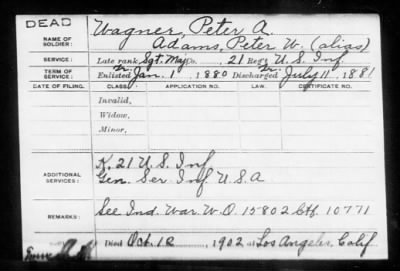 DEAD
NAME OF SOLDIER: Wagner, Peter A.
Adams, Peter W. (alias)
SERVICE: Late rank, Sgt. Maj Co. 21 Reg't U.S. Inf
TERM OF SERVICE: Enlisted Jan. 1, 1880 Discharged July 11, 1881
DATE OF FILING. CLASS. APPLICATION NO. LAW. CERTIFICATE NO.
Invalid,
Widow,
Minor,
ADDITIONAL SERVICES: K. 21 U.S. Inf
Gen. Ser Inf. U.S.A
REMARKS: See Ind. War. W.O. 15802 Ctf. 10771
Died Oct. 12, 1902 at Los Angeles, Calif